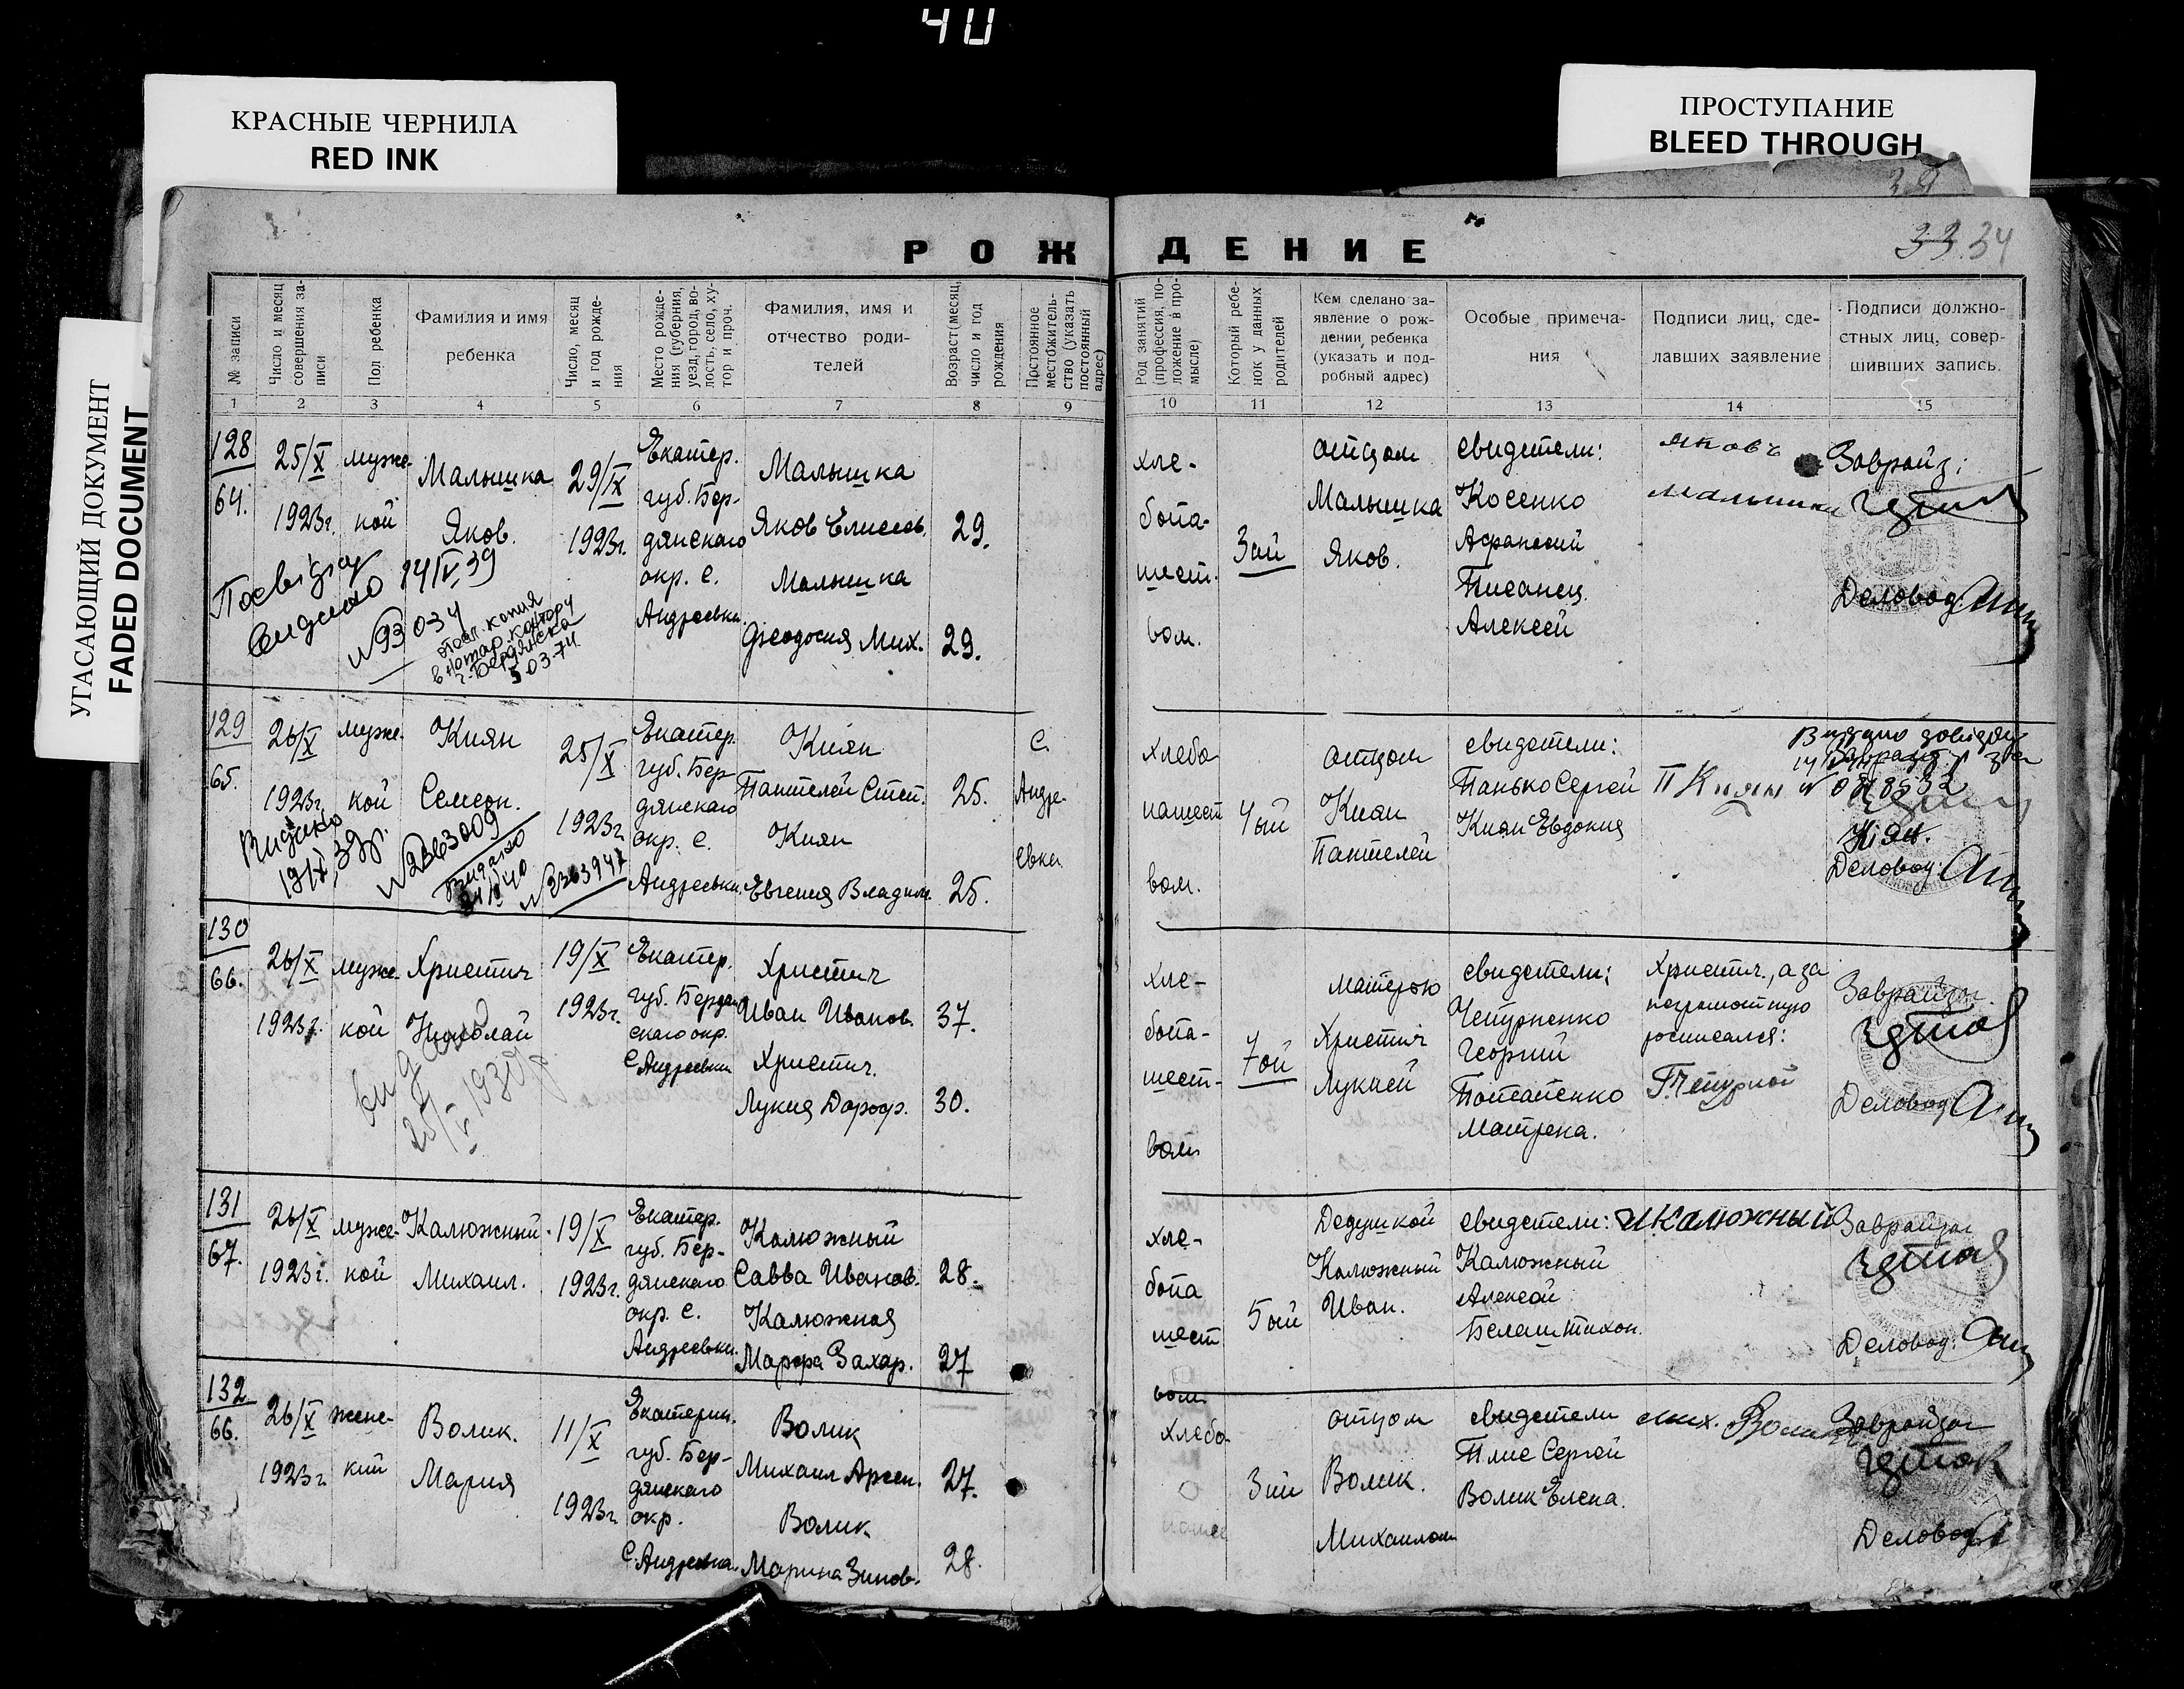 40
КРАСНЫЕ ЧЕРНИЛА
RED INK
ПРОСТУПАНИЕ
BLEED THROUGH
УГАСАЮЩИЙ ДОКУМЕНТ
FADED DOCUMENT
33 34
РОЖДЕНИЕ
№ записи
Число и месяц совершения записи
Пол ребенка
Фамилия и имя ребенка
Число, месяц и год рождения
Место рождения (губерния, уезд, город, волость, село, хутор и проч.
Фамилия, имя и отчество родителей
Возраст (месяц, число и год рождения
Постоянное местожительство (указать постоянный адрес)
Род занятий (профессия, положение в промысле)
Который ребенок у данных родителей
Кем сделано заявление о рождении ребенка (указать и подробный адрес)
Особые примечания
Подписи лиц, сделавших заявление
Подписи должностных лиц, совершивших запись.
1 2 3 4 5 6 7 8 9 10 11 12 13 14 15
128
64.
25/X
1923г.
мужской
Малышка
Яков.
29/IX
1923г.
Екатер.
губ. Бер-
дянскаго
окр. с.
Андреевка
Малышка
Яков Елисеев.
29.
Малышка
Феодосия Мих.
29.
хле-
бопа-
шест-
вом.
3ий
отцом
Малышка
Яков.
свидетели:
Косенко
Афанасий
Писанец
Алексей
Яковъ
Малышка
Заврайз:
Деловод:
видано 14/V 39
№93034
в нотар. контору
г. Бердянска
5.03.74
129
65.
26/X
1923г.
мужс-
кой
Киян
Семеон.
25/X
1923г.
Екатер.
губ. Бер
дянскаго
окр. с.
Андреевка
Киян
Пантелей Степ.
25.
Киян
Евгения Владим.
25.
с.
Андре-
евка
хлебо
пашест
вом.
4ый
отцом
Киян
Пантелей
свидетели:
Панько Сергей
Киян Евдокия
П Киян
Деловод:
Видано
№2363009
Видано
130
66.
26/X
1923г.
мужс-
кой
Христич
Николай
19/X
1923г.
Екатер.
губ. Бердян
скаго окр.
с. Андреевка
Христич
Иван Иванов.
37.
Христич.
Лукия Дороф.
30.
хле-
бопа-
шест-
вом
7ой
матерью
Христич
Лукией
свидетели:
Чепурненко
Георгий
Потапенко
Матрена.
Христич., а за
неграмотную
росписался:
Г. Чепурной
Заврайзаг.
Деловод
131
67.
26/X
1923г.
мужс-
кой
Калюжный
Михаил.
19/X
1923г.
Екатер.
губ. Бер-
дянскаго
окр. с.
Андреевка.
Калюжный
Савва Иванов.
28.
Калюжная
Марфа Захар.
27
хле-
бопа
шест
вом
5ый
Дедушкой
Калюжный
Иван.
свидетели:
Калюжный
Алексей
Белаш Тихон.
И Калюжный
Заврайзаг
Деловод:
132
66.
26/X
1923г
женс-
кий
Волик.
Мария
11/X
1923г.
Екатерин.
губ. Бер-
дянскаго
окр.
с. Андреевка.
Волик
Михаил Арсен.
27.
Волик
Марина Зинов.
28.
хлебо-
3ий
отцом
Волик.
Михаилом
свидетели
Плис Сергей
Волик Елена.
Мих. Волик
Заврайзаг
Деловод